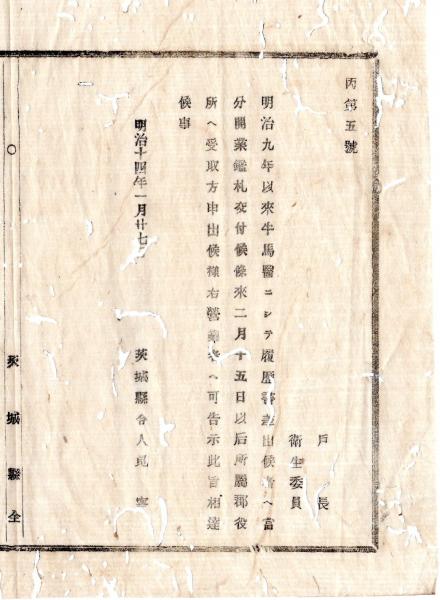 丙第五號
戶長
衛生委員
明治九年以來牛馬醫ニシテ履歷書差出候者ヘ當
分開業鑑札交付候條來二月十五日以后所屬郡役
所ヘ受取方申出候樣右營業者ヘ可告示此旨相達
候事
明治十四年一月廿七
茨城縣令人見寧
茨城縣令